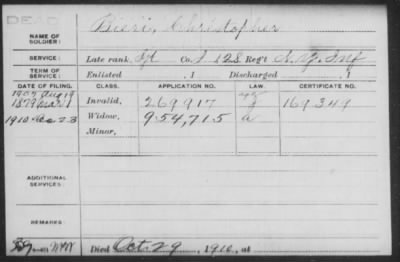 DEAD
NAME OF SOLDIER: Bieri, Christopher
SERVICE: Late rank, Sgt Co. I 128 Reg't N.Y. Inf
TERM OF SERVICE: Enlisted , 1 Discharged , 1
DATE OF FILING. CLASS. APPLICATION NO. LAW. CERTIFICATE NO.
1907 Aug
1879 Mar 1 Invalid, 269917 169349
1910 Dec 23 Widow, 954,715 a
Minor,
ADDITIONAL SERVICES:
REMARKS:
Died Oct. 29, 1910, at